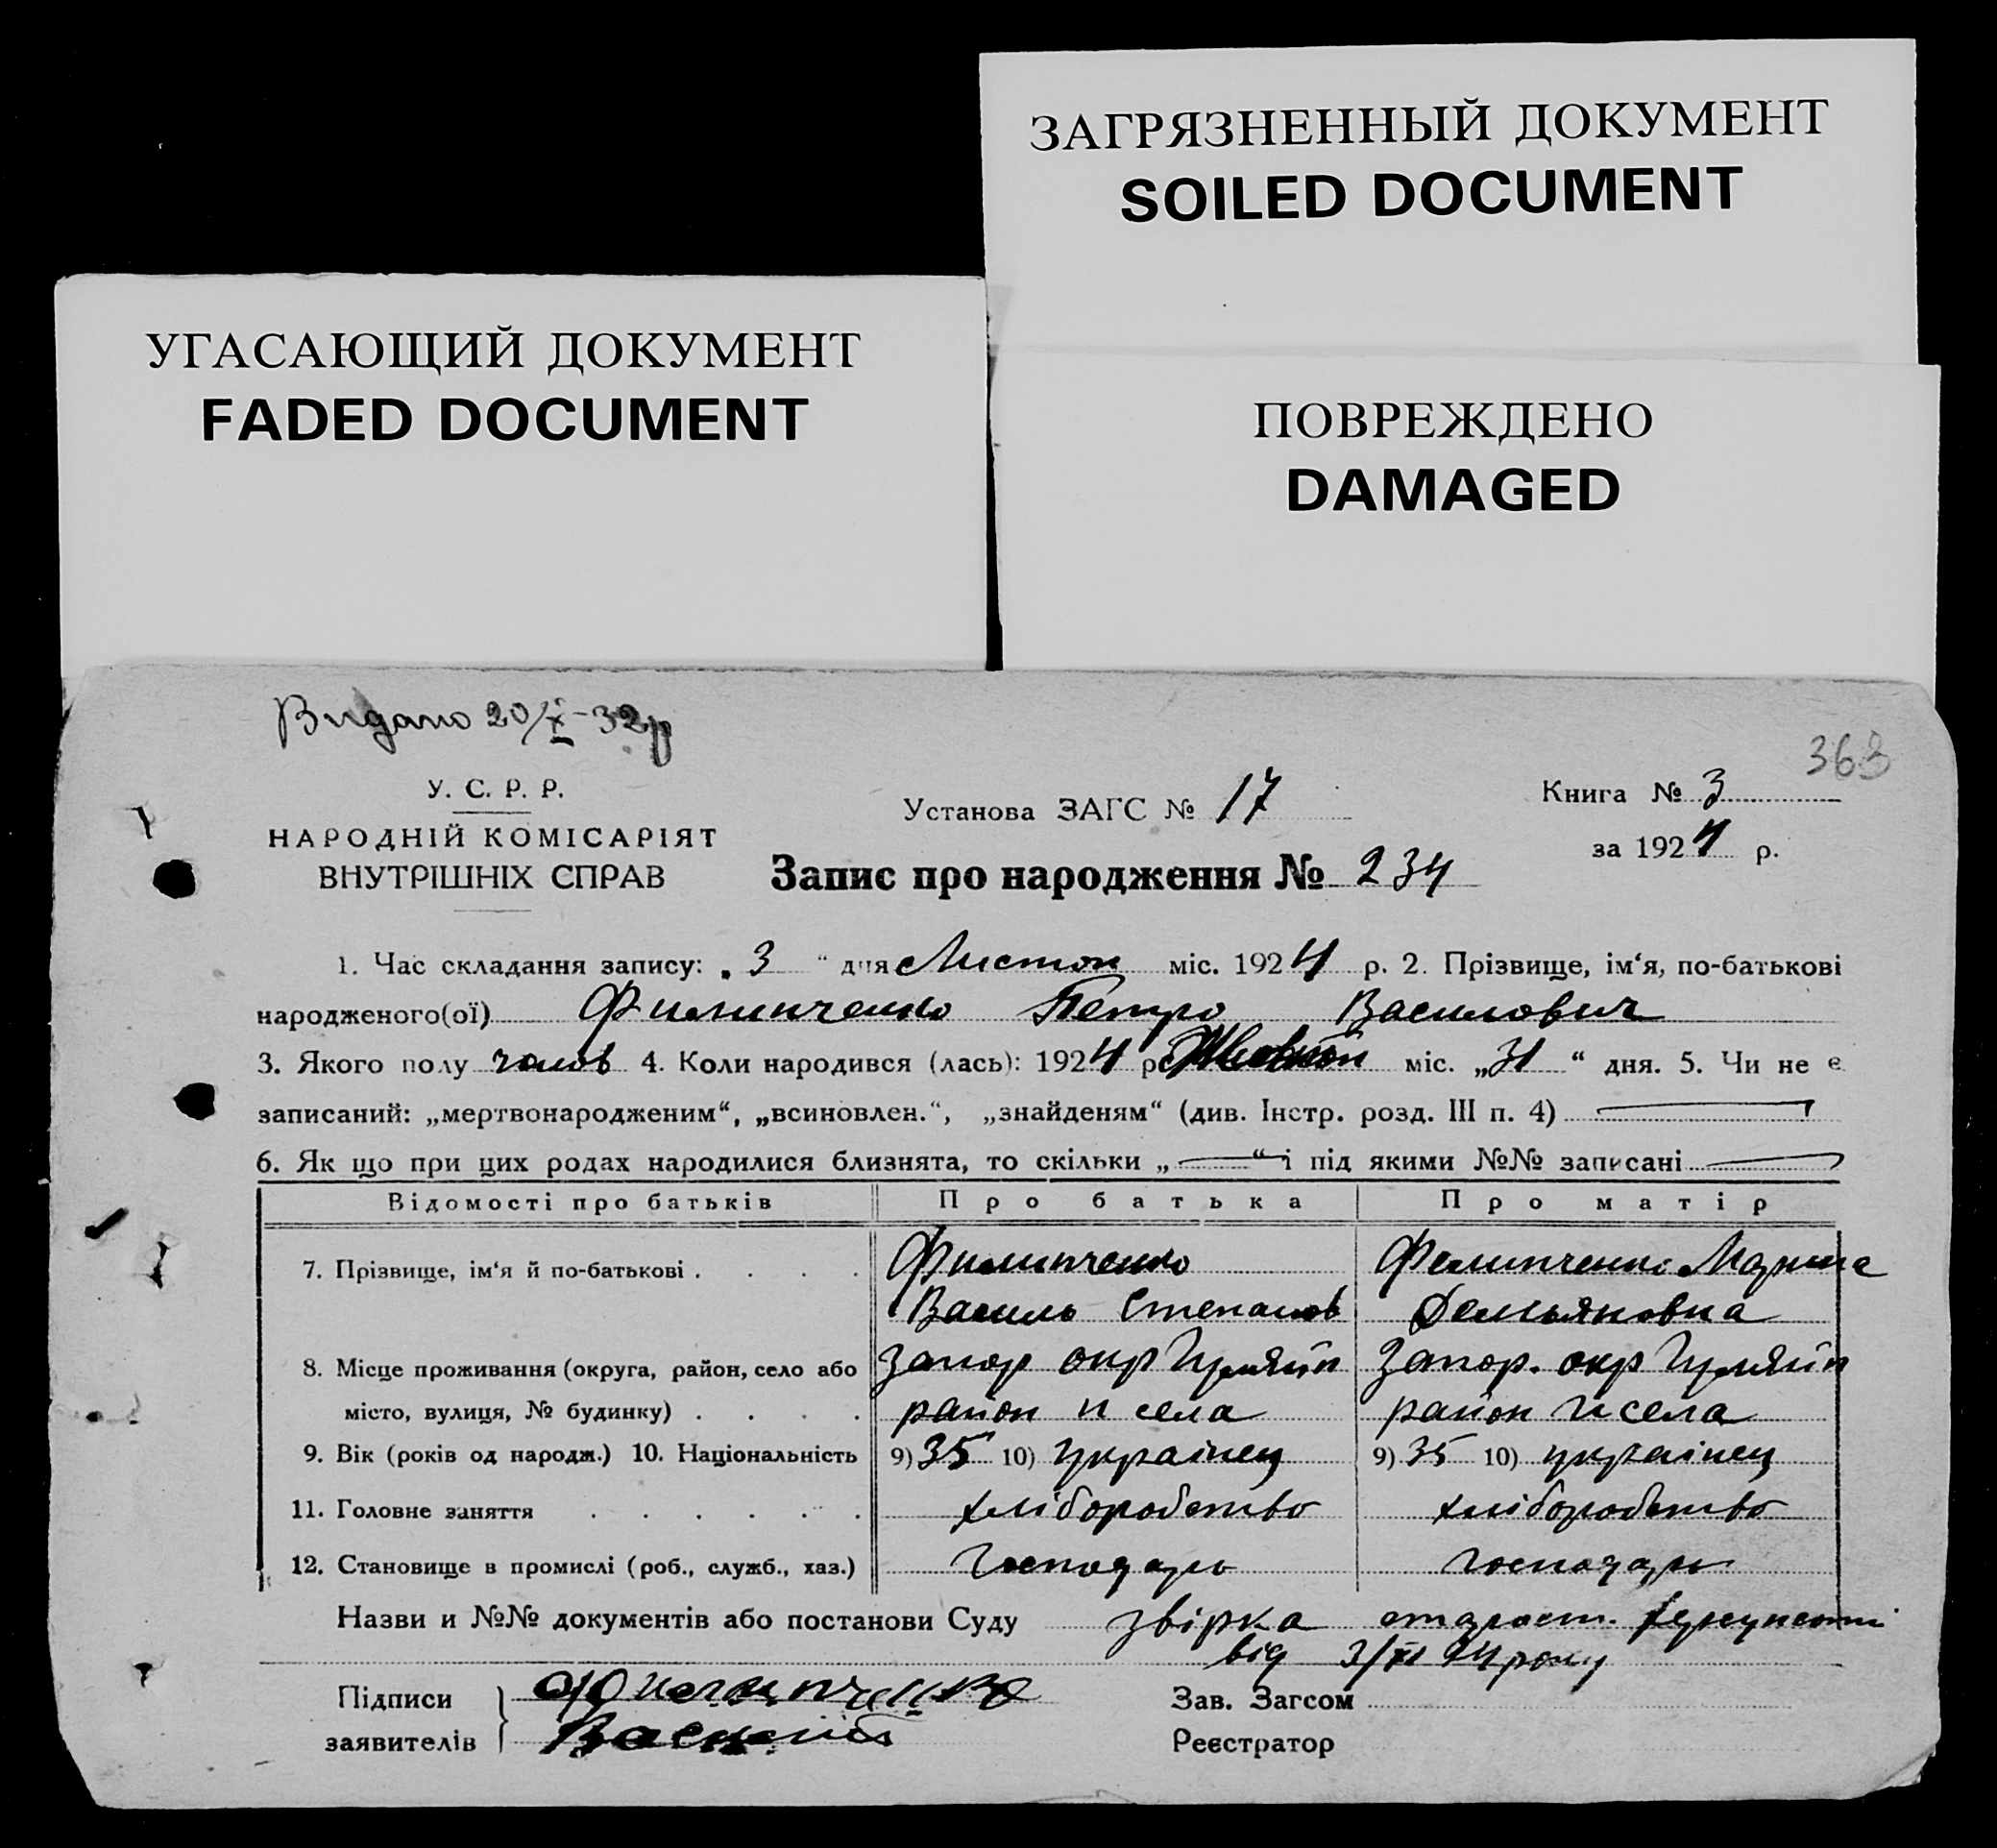 ЗАГРЯЗНЕННЫЙ ДОКУМЕНТ
SOILED DOCUMENT
УГАСАЮЩИЙ ДОКУМЕНТ
FADED DOCUMENT
ПОВРЕЖДЕНО
DAMAGED
Видано 20/X-32р
363
У. С. Р. Р.
НАРОДНІЙ КОМІСАРІЯТ
ВНУТРІШНІХ СПРАВ
Установа ЗАГС № 17
Книга № 3
за 1924 р.
Запис про народження № 234
1. Час складання запису: „3“ дня Листоп міс. 1924 р. 2. Прізвище, ім‘я, по-батькові
народженого(ої) Филипченко Петро Василович
3. Якого полу чолов 4. Коли народився (лась): 1924 р. Жовтон міс. „31“ дня. 5. Чи не є
записаний: „мертвонародженим“, „всиновлен.“, „знайденям“ (див. Інстр. розд. III п. 4)
6. Як що при цих родах народилися близнята, то скільки „—“ і під якими №№ записані —
Відомості про батьків Про батька Про матір
7. Прізвище, ім‘я й по-батькові . . . . Филипченко Филипченко Марина
Василь Степанов Демьяновна
8. Місце проживання (округа, район, село або Запор окр Гуляйп Запор. окр Гуляйп
місто, вулиця, № будинку) . . . . район и села район и села
9. Вік (років од народж.) 10. Національність 9) 35 10) українец 9) 35 10) українец
11. Головне заняття . . . . . . хліборобство хліборобство
12. Становище в промислі (роб., служб., хаз.) Господарь господарь
Назви и №№ документів або постанови Суду звірка
від 3/XI 24 року
Підписи Филипченко Зав. Загсом
заявителів Василий Реєстратор